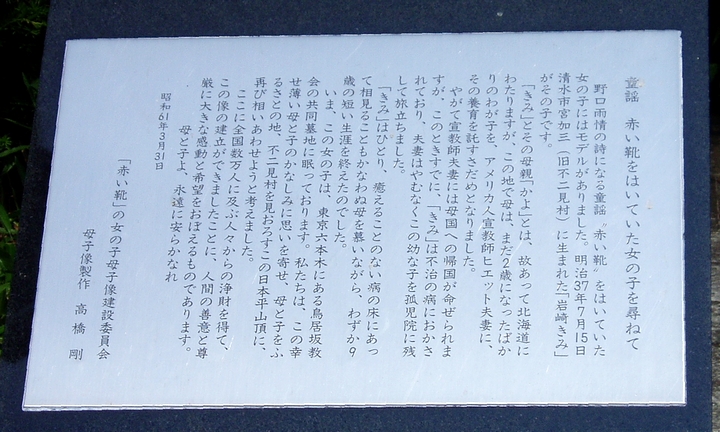 童謡 赤い靴をはいていた女の子を尋ねて
野口雨情の詩になる童謡〝赤い靴〟をはいていた
女の子にはモデルがありました。明治37年7月15日
清水市宮加三(旧不二見村)に生まれた「岩崎きみ」
がその子です。
「きみ」とその母親「かよ」とは、故あって北海道に
わたりますが、この地で母は、まだ2歳になったばか
りのわが子を、アメリカ人宣教師ヒエット夫妻に、
その養育を託すさだめとなりました。
やがて宣教師夫妻には母国への帰国が命ぜられま
すが、このときすでに、「きみ」は不治の病におかさ
れており、夫妻はやむなくこの幼な子を孤児院に残
して旅立ちました。
「きみ」はひとり、癒えることのない病の床にあっ
て相見ることもかなわぬ母を慕いながら、わずか9
歳の短い生涯を終えたのでした。
いま、この女の子は、東京六本木にある鳥居坂教
会の共同墓地に眠っております。私たちは、この幸
せ薄い母と子のかなしみに思いを寄せ、母と子をふ
るさとの地、不二見村を見おろすこの日本平山頂に、
再び相いあわせようと考えました。
ここに全国数万人に及ぶ人々からの浄財を得て、
この像の建立ができましたことに、人間の善意と尊
厳に大きな感動と希望をおぼえるものであります。
母と子よ、永遠に安らかなれ
昭和61年3月31日
「赤い靴」の女の子母子像建設委員会
母子像製作 高橋 剛